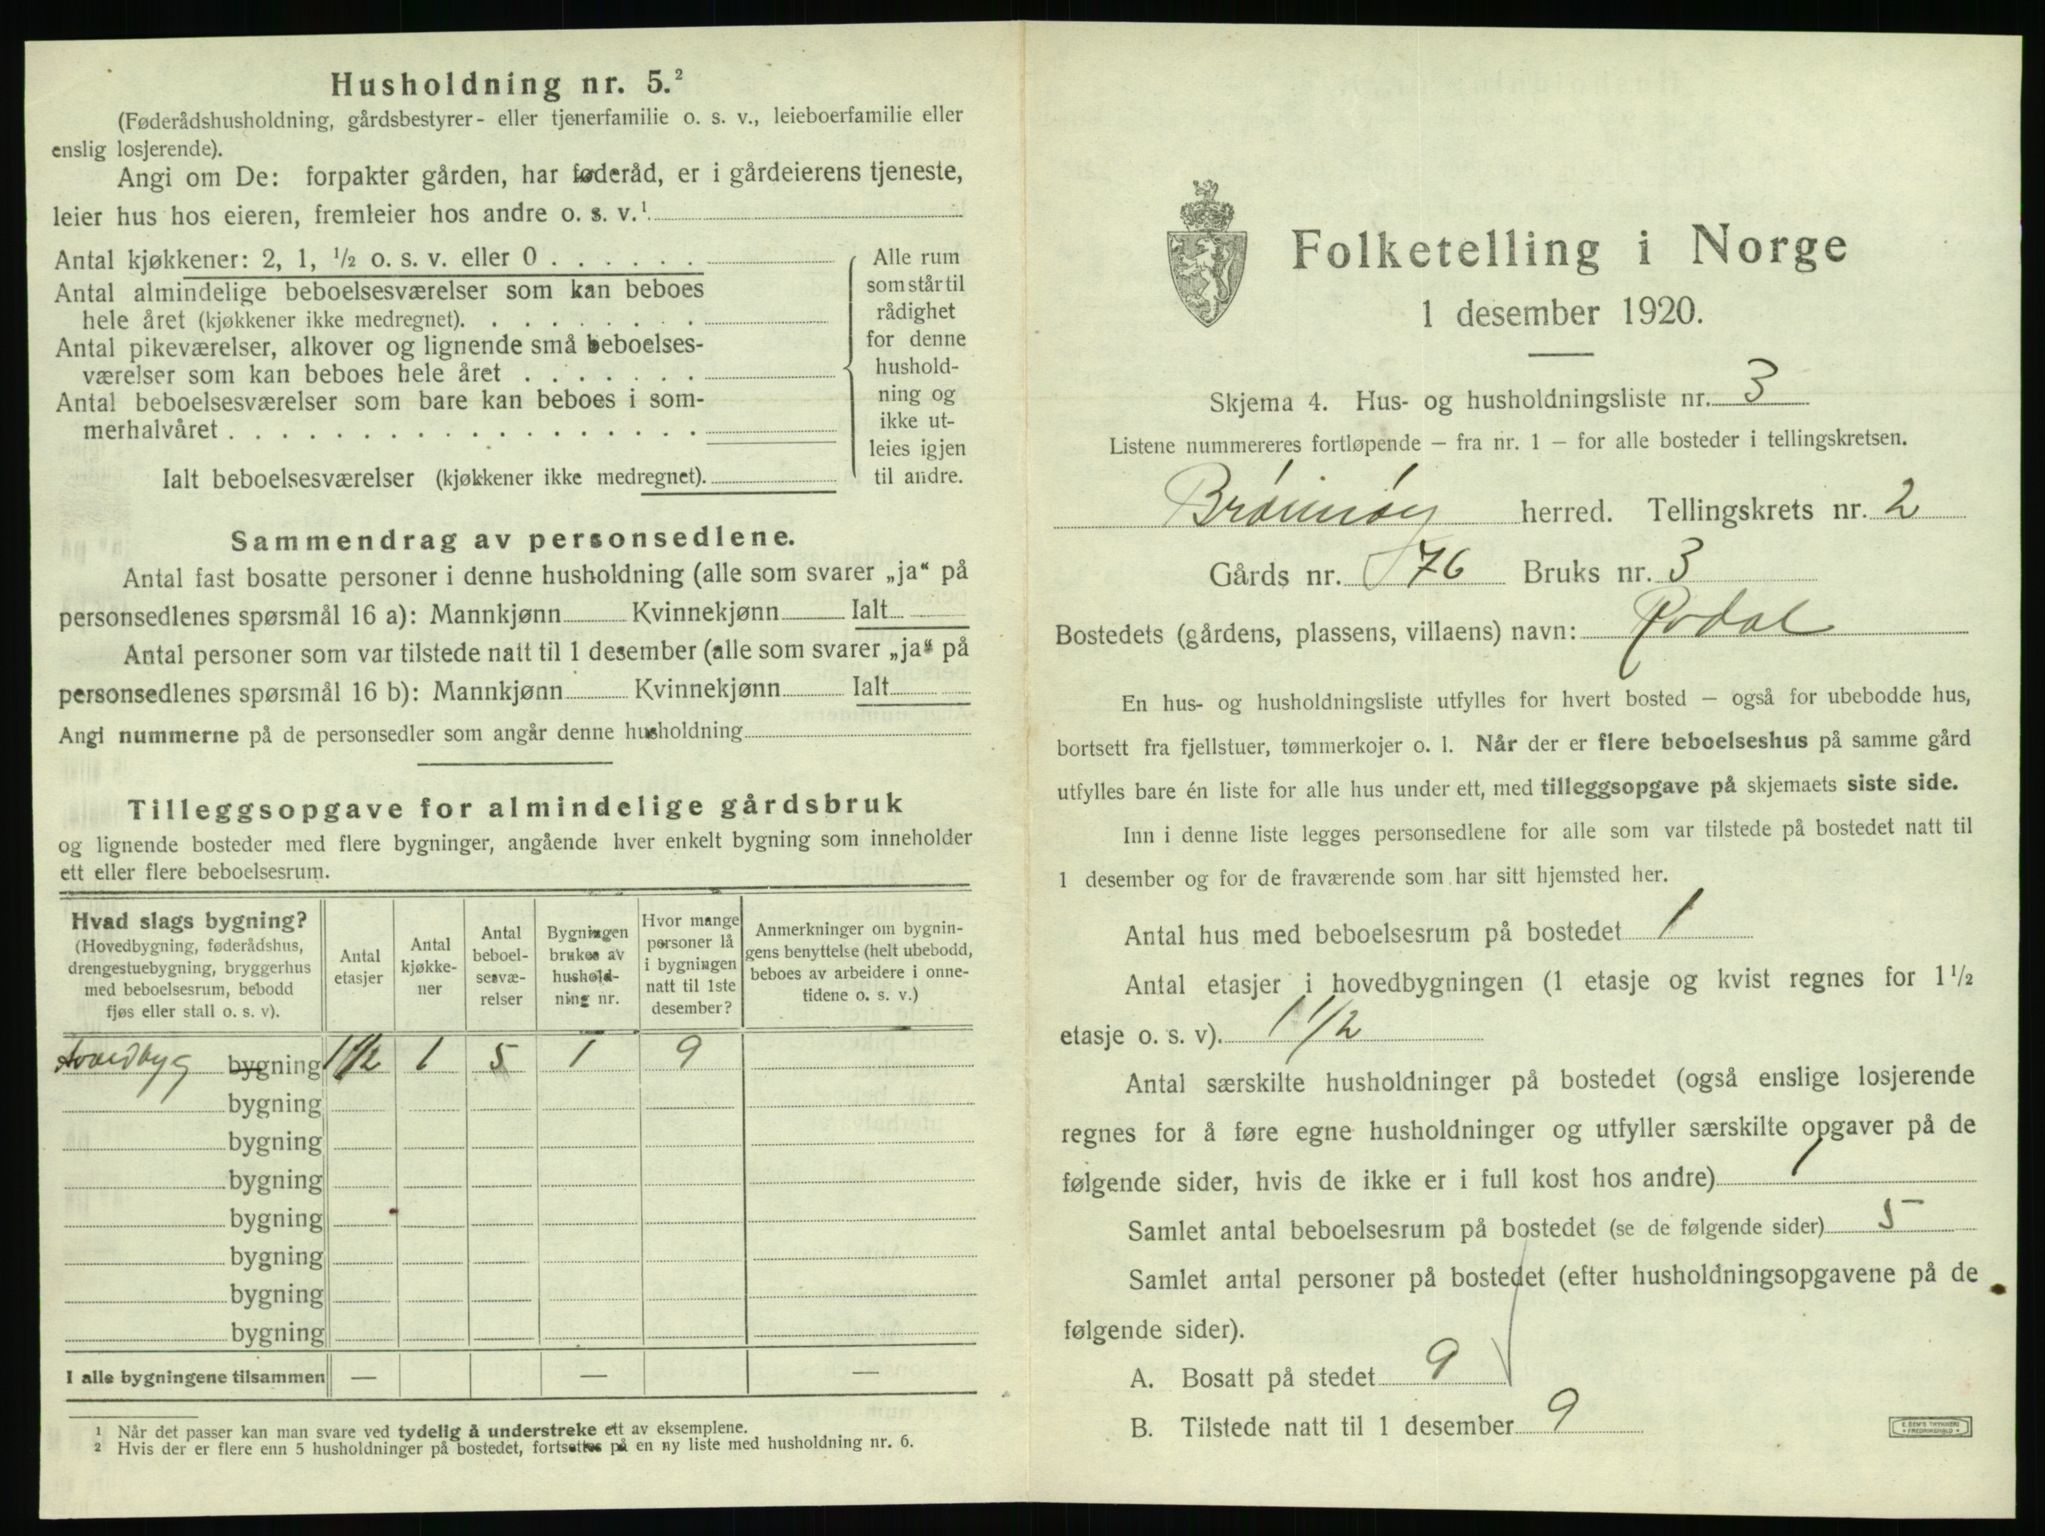 Husholdning nr. 5.²
(Føderådshusholdning, gårdsbestyrer- eller tjenerfamilie o. s. v., leieboerfamilie eller
enslig losjerende).
Angi om De: forpakter gården, har føderåd, er i gårdeierens tjeneste,
leier hus hos eieren, fremleier hos andre o. s. v.¹
Antal kjøkkener: 2, 1, ½ o. s. v. eller 0 . . . . . .
Antal almindelige beboelsesværelser som kan beboes
hele året (kjøkkener ikke medregnet). . . . . . . . .
Antal pikeværelser, alkover og lignende små beboelses-
værelser som kan beboes hele året . . . . . . .
Antal beboelsesværelser som bare kan beboes i som-
merhalvåret . . . . . . . . . . . . . . . . . .
Ialt beboelsesværelser (kjøkkener ikke medregnet).
Alle rum
som står til
rådighet
for denne
hushold-
ning og
ikke ut-
leies igjen
til andre.
Sammendrag av personsedlene.
Antal fast bosatte personer i denne husholdning (alle som svarer „ja“ på
personsedlenes spørsmål 16 a): Mannkjønn Kvinnekjønn Ialt
Antal personer som var tilstede natt til 1 desember (alle som svarer „ja“ på
personsedlenes spørsmål 16 b): Mannkjønn Kvinnekjønn Ialt
Angi nummerne på de personsedler som angår denne husholdning
Tilleggsopgave for almindelige gårdsbruk
og lignende bosteder med flere bygninger, angående hver enkelt bygning som inneholder
ett eller flere beboelsesrum.
Hvad slags bygning?
(Hovedbygning, føderådshus,
drengestuebygning, bryggerhus
med beboelsesrum, bebodd
fjøs eller stall o. s. v).
Antal
etasjer
Antal
kjøkke-
ner
Antal
beboel-
sesvæ-
relser
Bygningen
brukes av
hushold-
ning nr.
Hvor mange
personer lå
i bygningen
natt til 1ste
desember?
Anmerkninger om bygnin-
gens benyttelse (helt ubebodd,
beboes av arbeidere i onne-
tidene o. s. v.)
bygning 1 1/2 1 5 1 9
bygning
bygning
bygning
bygning
bygning
bygning
bygning
I alle bygningene tilsammen — — —
¹ Når det passer kan man svare ved tydelig å understreke ett av eksemplene.
² Hvis der er flere enn 5 husholdninger på bostedet, fortsettes på en ny liste med husholdning nr. 6.
Folketelling i Norge
1 desember 1920.
Skjema 4. Hus- og husholdningsliste nr. 3
Listene nummereres fortløpende – fra nr. 1 – for alle bosteder i tellingskretsen.
Brønnøy herred. Tellingskrets nr. 2
Gårds nr. 76 Bruks nr. 3
Bostedets (gårdens, plassens, villaens) navn: Rodal
En hus- og husholdningsliste utfylles for hvert bosted – også for ubebodde hus,
bortsett fra fjellstuer, tømmerkojer o. l. Når der er flere beboelseshus på samme gård
utfylles bare én liste for alle hus under ett, med tilleggsopgave på skjemaets siste side.
Inn i denne liste legges personsedlene for alle som var tilstede på bostedet natt til
1 desember og for de fraværende som har sitt hjemsted her.
Antal hus med beboelsesrum på bostedet 1
Antal etasjer i hovedbygningen (1 etasje og kvist regnes for 1½
etasje o. s. v). 1 1/2
Antal særskilte husholdninger på bostedet (også enslige losjerende
regnes for å føre egne husholdninger og utfyller særskilte opgaver på de
følgende sider, hvis de ikke er i full kost hos andre) 1
Samlet antal beboelsesrum på bostedet (se de følgende sider) 5
Samlet antal personer på bostedet (efter husholdningsopgavene på de
følgende sider).
A. Bosatt på stedet 9
B. Tilstede natt til 1 desember 9